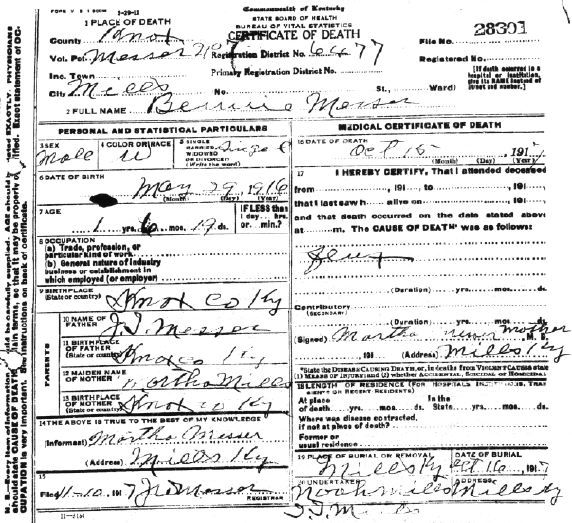 FORM V. S. 1
1-29-11
Commonwealth of Kentucky
STATE BOARD OF HEALTH
BUREAU OF VITAL STATISTICS
CERTIFICATE OF DEATH
1 PLACE OF DEATH
County Knox
Vot. Pct. Messer
Inc. Town
City Mills No. St., Ward)
Registration District No. 6477
Primary Registration District No.
File No. 28301
Registered No.
[If death occurred in a hospital or institution, give its NAME instead of street and number.]
2 FULL NAME Bennie Messer
PERSONAL AND STATISTICAL PARTICULARS
3 SEX Male
4 COLOR OR RACE W
5 SINGLE, MARRIED, WIDOWED OR DIVORCED (Write the word) Single
6 DATE OF BIRTH
May 29, 1916
(Month) (Day) (Year)
7 AGE
1 yrs. mos. 19 ds.
If LESS than 1 day, hrs. or min.?
8 OCCUPATION
(a) Trade, profession, or particular kind of work
(b) General nature of industry business or establishment in which employed (or employer)
9 BIRTHPLACE (State or country) Knox Co Ky
PARENTS
10 NAME OF FATHER J. J. Messer
11 BIRTHPLACE OF FATHER (State or country) Knox co Ky
12 MAIDEN NAME OF MOTHER Martha Mills
13 BIRTHPLACE OF MOTHER (State or country) Knox co Ky
14 THE ABOVE IS TRUE TO THE BEST OF MY KNOWLEDGE
(Informant) Martha Messer
(Address) Mills Ky
15
Filed 11-10 1917 Messer
REGISTRAR
11-3151
MEDICAL CERTIFICATE OF DEATH
16 DATE OF DEATH
Oct 15, 1917
(Month) (Day) (Year)
17 I HEREBY CERTIFY, That I attended deceased
from , 191 to , 191 ,
that I last saw h alive on , 191 ,
and that death occurred on the date stated above
at m. The CAUSE OF DEATH* was as follows:
(Duration) yrs. mos. ds.
Contributory
(SECONDARY)
(Duration) yrs. mos. ds.
(Signed) Martha mother M. D.
, 191 (Address) Mills Ky
*State the DISEASE CAUSING DEATH, or, in deaths from VIOLENT CAUSES state (1) MEANS OF INJURY; and (2) whether ACCIDENTAL, SUICIDAL or HOMICIDAL
18 LENGTH OF RESIDENCE (FOR HOSPITALS, INSTITUTIONS, TRANSIENTS OR RECENT RESIDENTS)
At place of death yrs. mos. ds. In the State yrs. mos. ds.
Where was disease contracted, if not at place of death?
Former or usual residence
19 PLACE OF BURIAL OR REMOVAL Mills Ky
DATE OF BURIAL Oct 16, 1917
20 UNDERTAKER Noah Mills
ADDRESS Mills Ky